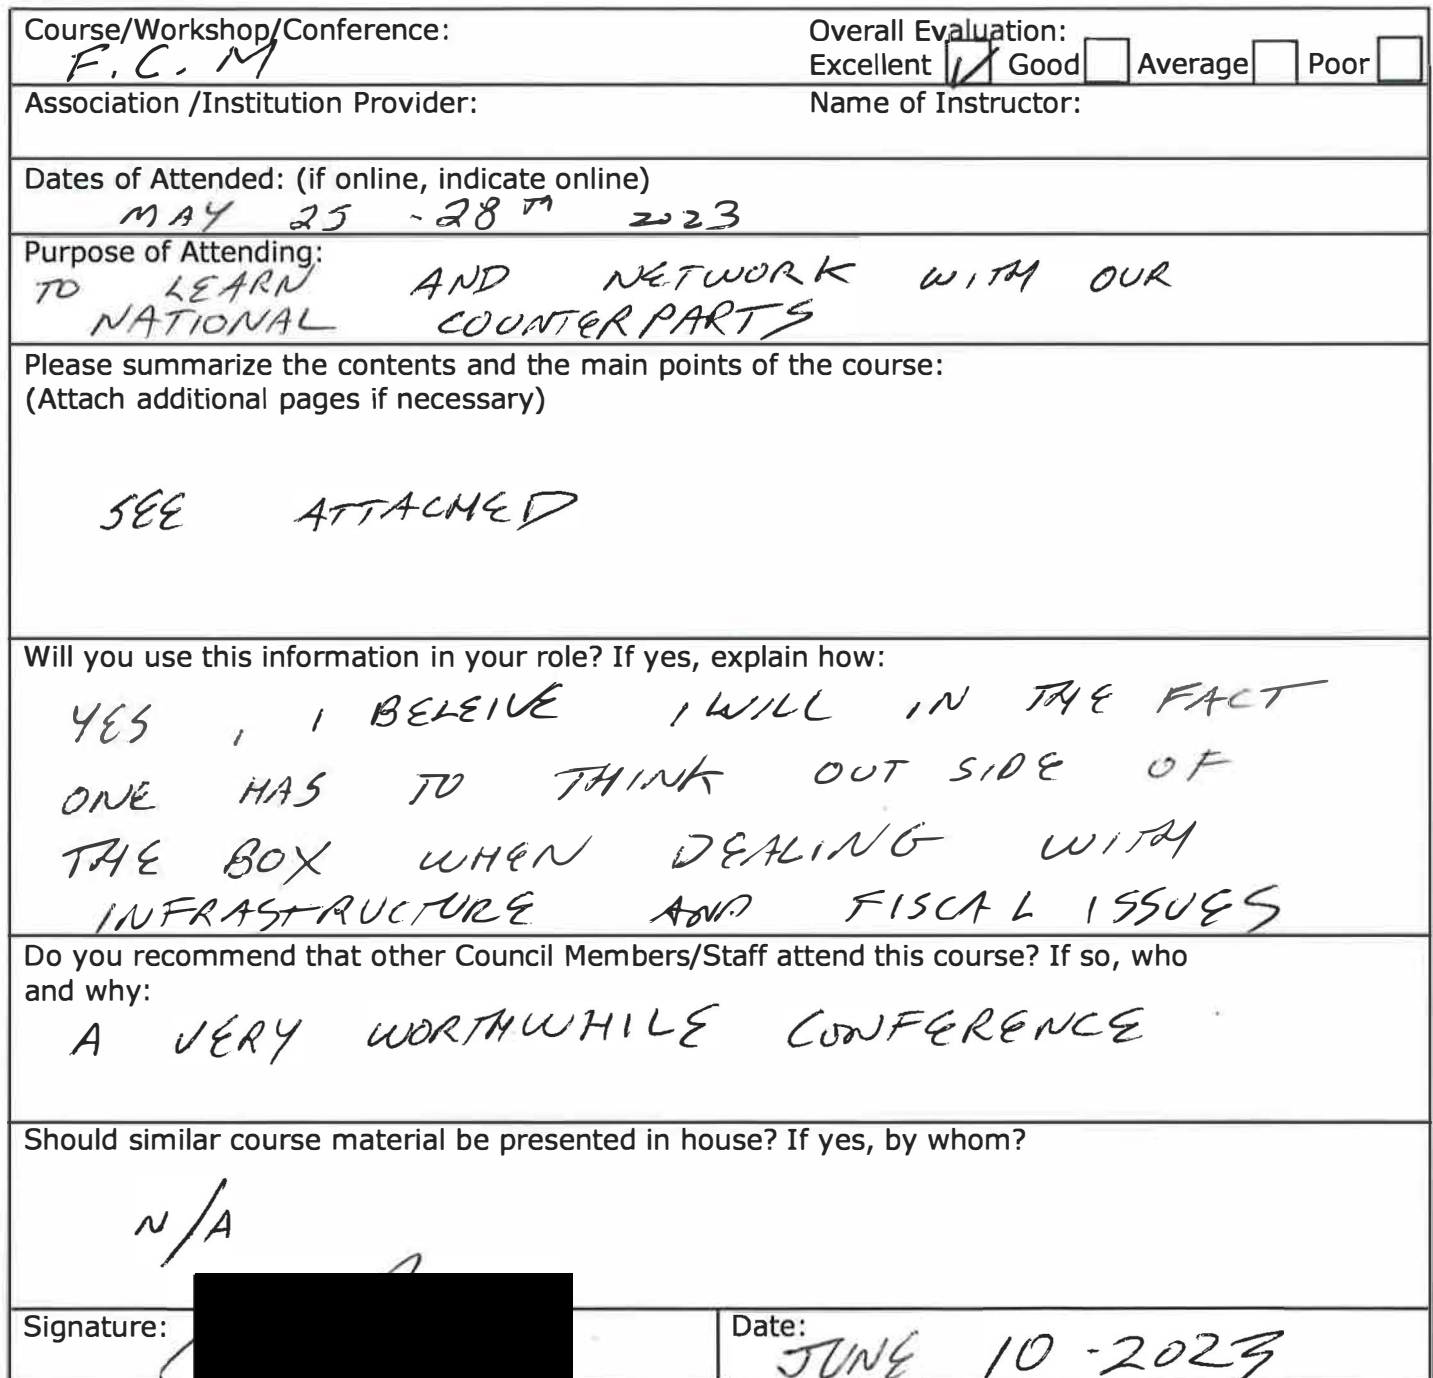 Course/Workshop/Conference:
F.C.M
Overall Evaluation:
Excellent Good Average Poor
Association /Institution Provider:
Name of Instructor:
Dates of Attended: (if online, indicate online)
MAY 25 - 28TH 2023
Purpose of Attending:
TO LEARN AND NETWORK WITH OUR
NATIONAL COUNTERPARTS
Please summarize the contents and the main points of the course:
(Attach additional pages if necessary)
SEE ATTACHED
Will you use this information in your role? If yes, explain how:
YES, I BELEIVE I WILL IN THE FACT
ONE HAS TO THINK OUT SIDE OF
THE BOX WHEN DEALING WITH
INFRASTRUCTURE AND FISCAL ISSUES
Do you recommend that other Council Members/Staff attend this course? If so, who
and why:
A VERY WORTHWHILE CONFERENCE
Should similar course material be presented in house? If yes, by whom?
N/A
Signature:
Date:
JUNE 10 - 2023